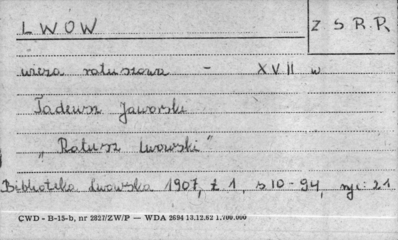 LWOW
Z S R R
wieża ratuszowa - XVII w
Tadeusz Jaworski
„Ratusz lwowski"
Biblioteka Lwowska 1907, t 1, s 10-94, ryc: 21
CWD - B-15-b, nr 2827/ZW/P — WDA 2694 13.12.62 1.700.000